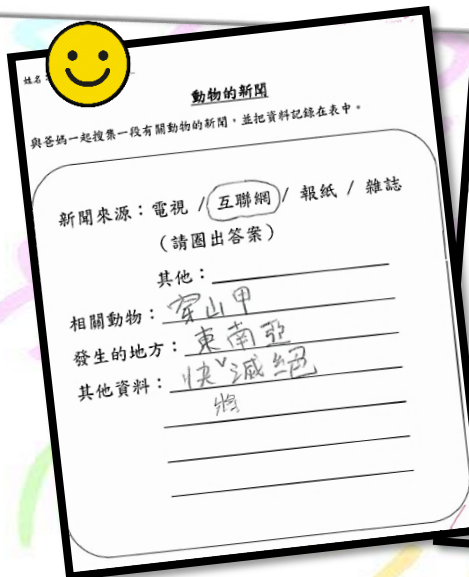 姓名：
動物的新聞
與爸媽一起搜集一段有關動物的新聞，並把資料記錄在表中。
新聞來源：電視 / 互聯網 / 報紙 / 雜誌
（請圈出答案）
其他：
相關動物：穿山甲
發生的地方：東南亞
其他資料：快滅絕
將